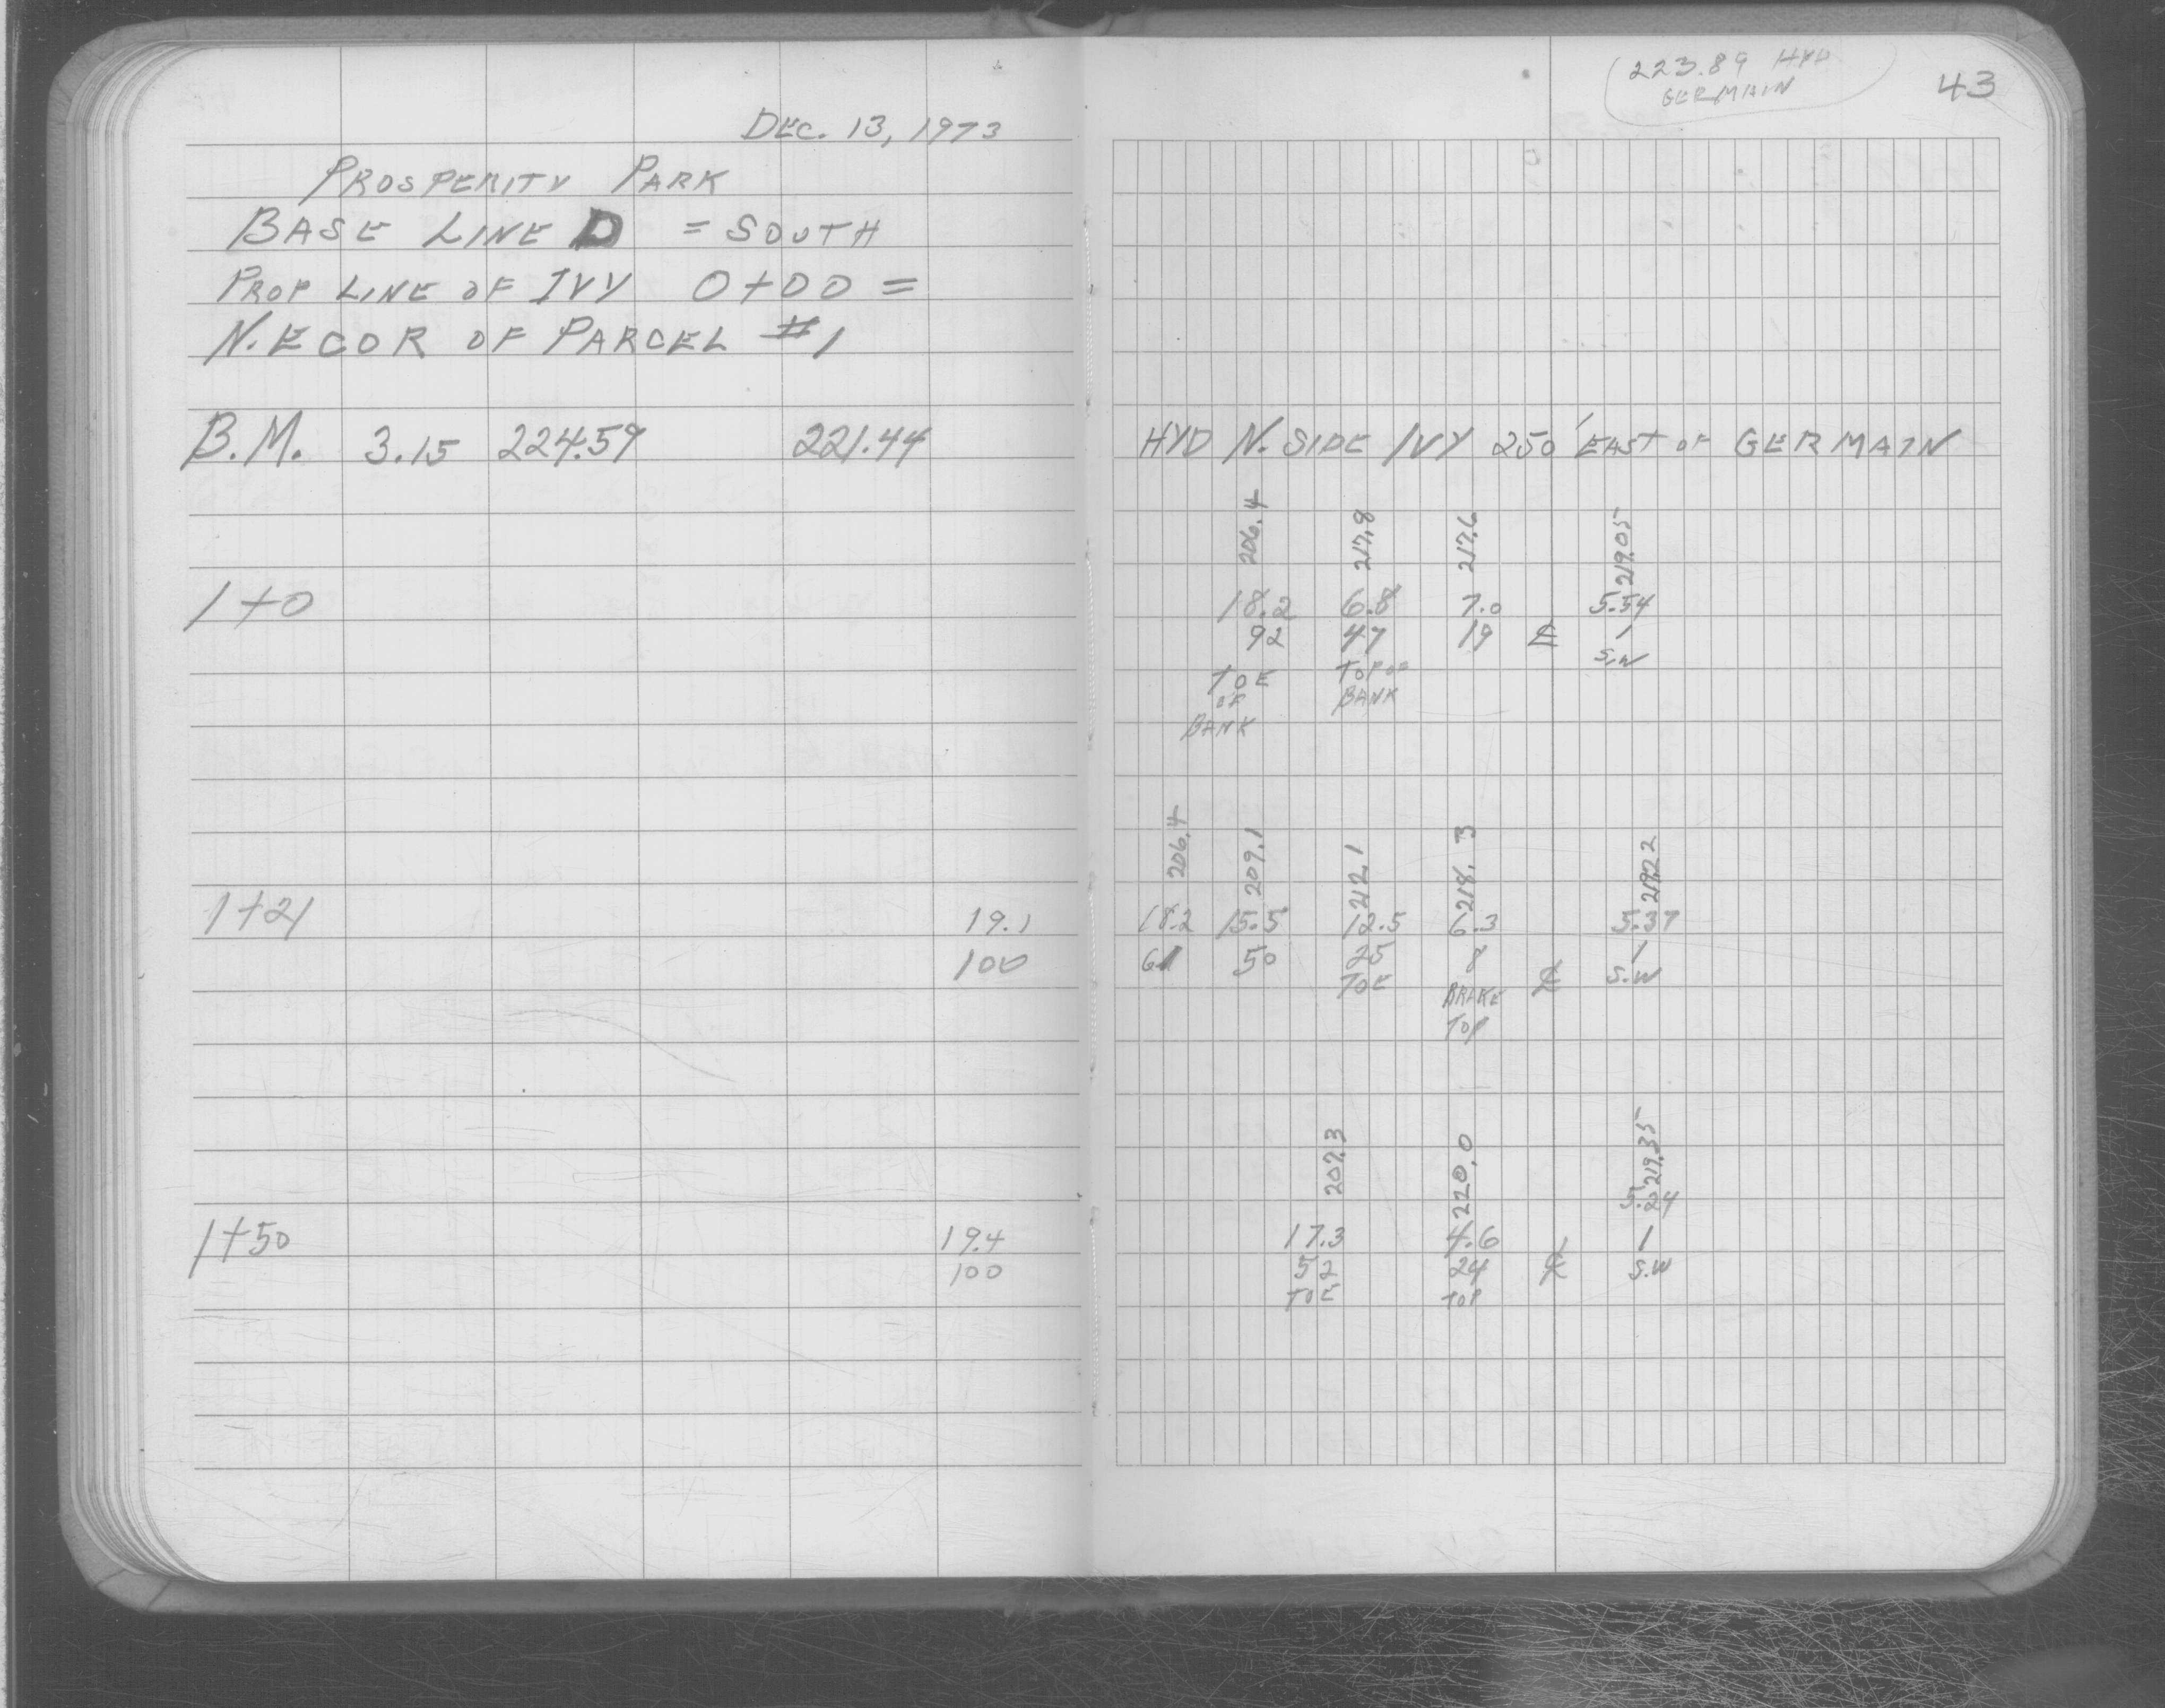 DEC. 13, 1973
PROSPERITY PARK
BASE LINE D = SOUTH
PROP LINE OF IVY 0+00 =
N.E COR OF PARCEL #1
B.M. 3.15 224.59 221.44
1+0
1+21 19.1
100
1+50 19.4
100
223.89 HYD
GERMAIN
43
HYD N. SIDE IVY 250' EAST OF GERMAIN
206.4 217.8 217.6 219.05
18.2 6.8 7.0 5.54
92 47 19 ℄ 1
TOE TOP OF S.W
OF BANK
BANK
206.4 209.1 212.1 218.3 219.22
18.2 15.5 12.5 6.3 5.37
61 50 25 8 ℄ 1
TOE BRAKE S.W
TOP
207.3 220.0 219.35
5.24
17.3 4.6 1
52 24 ℄ S.W
TOE TOP